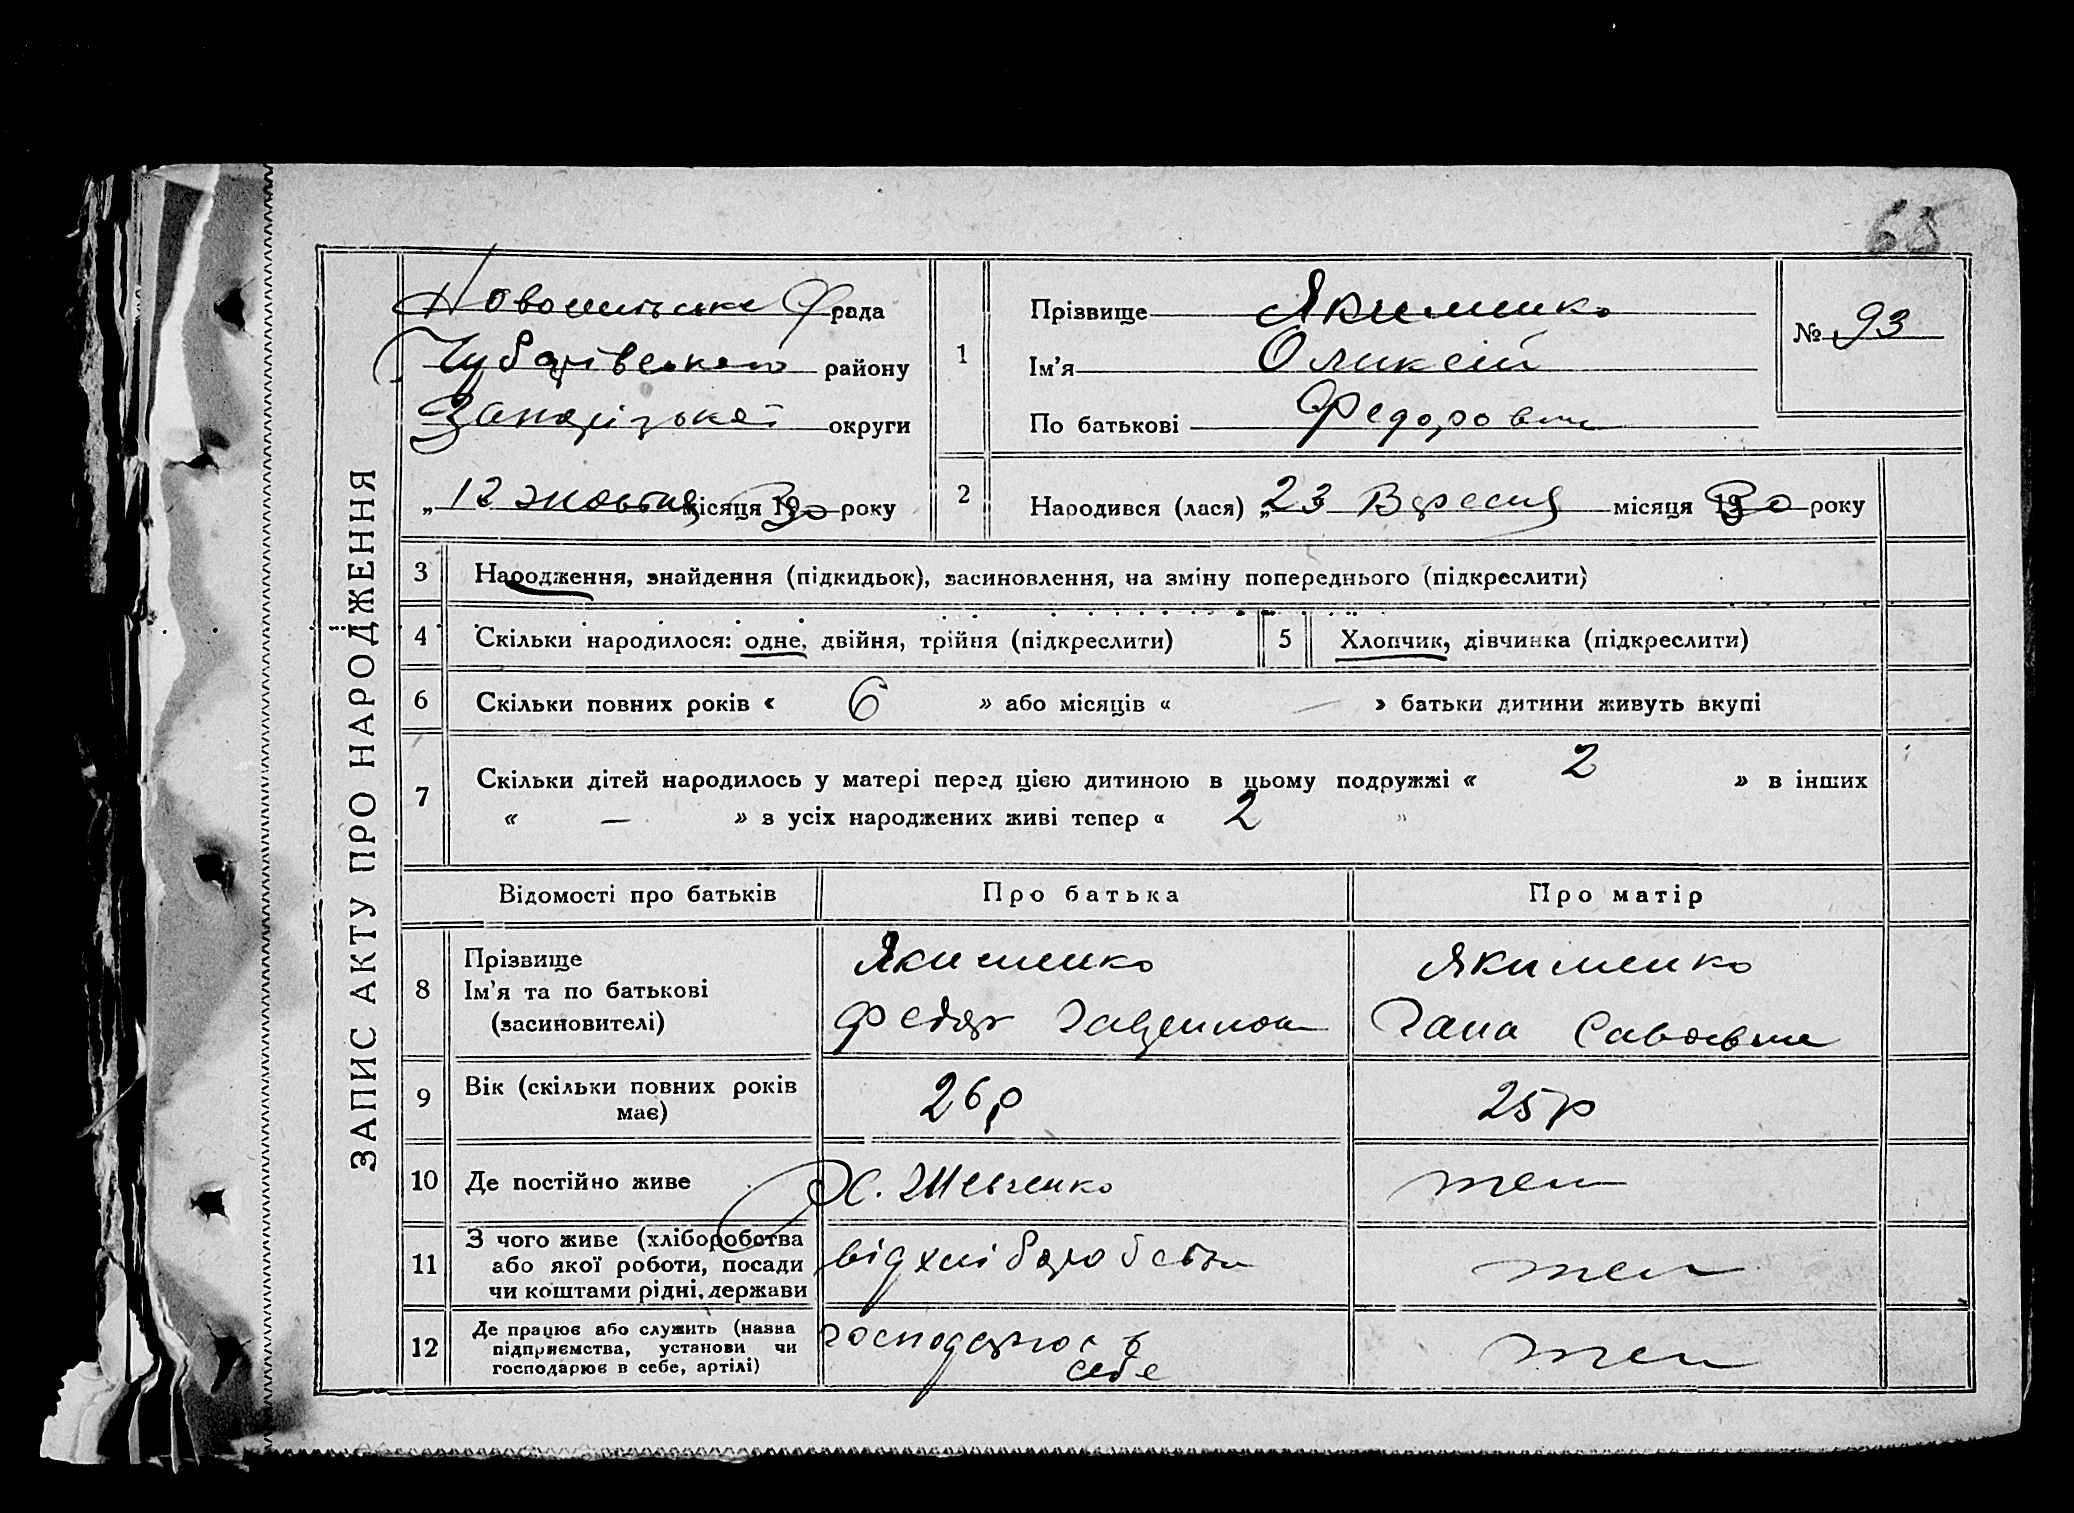 65
ЗАПИС АКТУ ПРО НАРОДЖЕННЯ
рада
Чубарівського району
Запорізької округи
„ 12 жовтня місяця 1930 року
1
Прізвище Якименко
Ім'я Оликсій
По батькові Федорович
№ 93
2
Народився (лася) „ 23 Вересня місяця 1930 року
3 Народження, знайдення (підкидьок), засиновлення, на зміну попереднього (підкреслити)
4 Скільки народилося: одне, двійня, трійня (підкреслити)
5 Хлопчик, дівчинка (підкреслити)
6 Скільки повних років « 6 » або місяців « — » батьки дитини живуть вкупі
7 Скільки дітей народилось у матері перед цією дитиною в цьому подружжі « 2 » в інших
« — » з усіх народжених живі тепер « 2 »
Відомості про батьків Про батька Про матір
8 Прізвище
Ім'я та по батькові
(засиновителі)
Якименко
Федор
Якименко
Гана Савовна
9 Вік (скільки повних років
має)
26 р
25 р
10 Де постійно живе
Х. Шевченко
теж
11 З чого живе (хліборобства
або якої роботи, посади
чи коштами рідні, держави
від хліборобства
теж
12 Де працює або служить (назва
підприємства, установи чи
господарює в себе, артілі)
господарює в
себе
теж